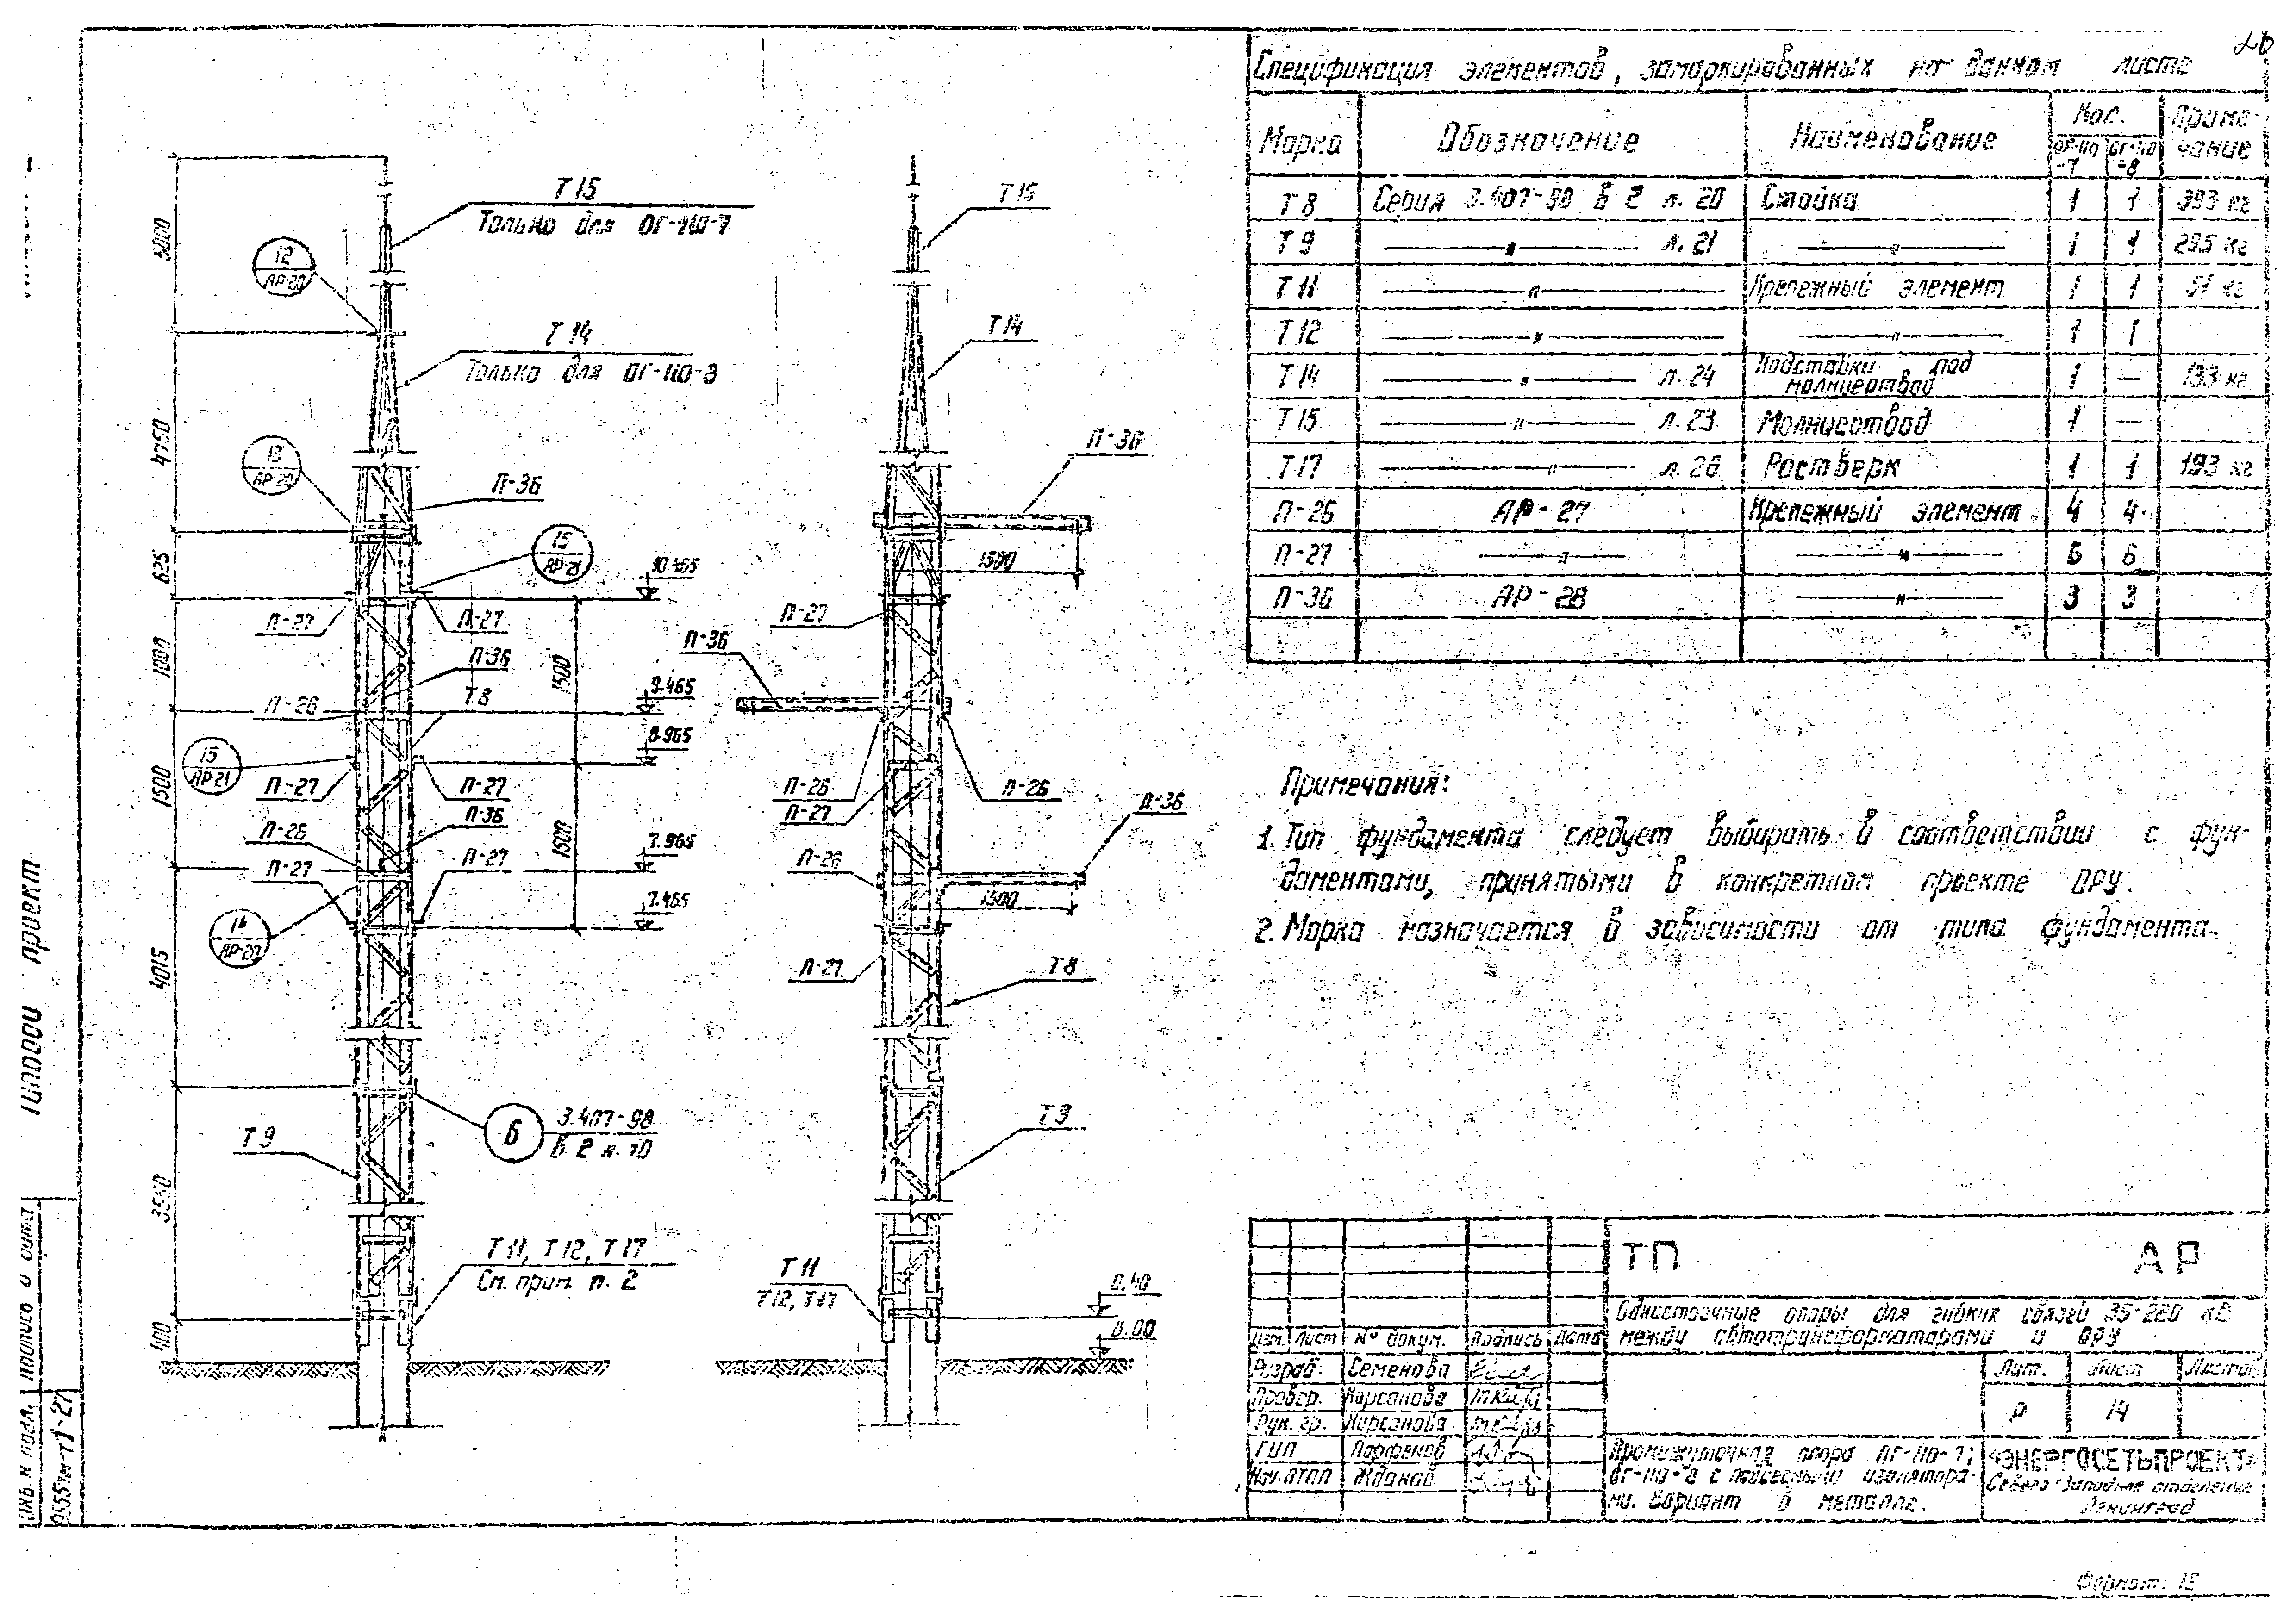 Спецификация элементов, замаркированных на данном листе
Марка Обозначение Наименование Кол. Приме-
чание
ОГ-110 -7 ОГ-110 -8
Т 8 Серия 3.407-98 В 2 л. 20 Стойка 1 1 393 кг
Т 9 —〃— л. 21 —〃— 1 1 295 кг
Т 11 —〃— Крепежный элемент 1 1 51 кг
Т 12 —〃— —〃— 1 1
Т 14 —〃— л. 24 Подставка под молниеотвод 1 — 133 кг
Т 15 —〃— л. 23 Молниеотвод 1 —
Т 17 —〃— л. 26 Ростверк 1 1 193 кг
П-26 АР-27 Крепежный элемент 4 4
П-27 —〃— —〃— 6 6
П-36 АР-28 —〃— 3 3
Примечания:
1. Тип фундамента следует выбирать в соответствии с фун-
даментами, принятыми в конкретном проекте ОРУ.
2. Марка назначается в зависимости от типа фундамента.
Т 15
Только для ОГ-110-7
12
АР-20
Т 14
Только для ОГ-110-8
13
АР-20
П-36
15
АР-21
10.465
П-27
П-27
П-36
Т 8
П-26
9.465
8.965
15
АР-21
П-27
П-27
П-36
П-26
7.965
П-27
П-27
7.465
14
АР-20
Т 9
Б
3.407-98
В 2 л. 10
Т 11, Т 12, Т 17
См. прим. п. 2
5000
4750
625
1000
1500
4015
400
1500
1500
Т 15
Т 14
П-36
1500
П-27
П-36
П-26
П-27
П-26
П-36
П-26
1500
П-27
Т 8
Т 9
Т 11
Т 12, Т 17
0.40
0.00
Типовой проект
Инв. № подл. Подпись и дата
ТП АР
Одностоечные опоры для гибких связей 35-220 кВ
между автотрансформаторами и ОРУ
Изм. Лист № докум. Подпись Дата
Разраб. Семенова
Провер. Кирсанова
Рук. гр. Кирсанова
ГИП Парфенов
Нач. ПТПО Жданов
Лит. Лист Листов
Р 14
Промежуточная опора ОГ-110-7;
ОГ-110-8 с подвесными изолятора-
ми. Вариант в металле.
«ЭНЕРГОСЕТЬПРОЕКТ»
Северо-Западное отделение
Ленинград
Формат: 12